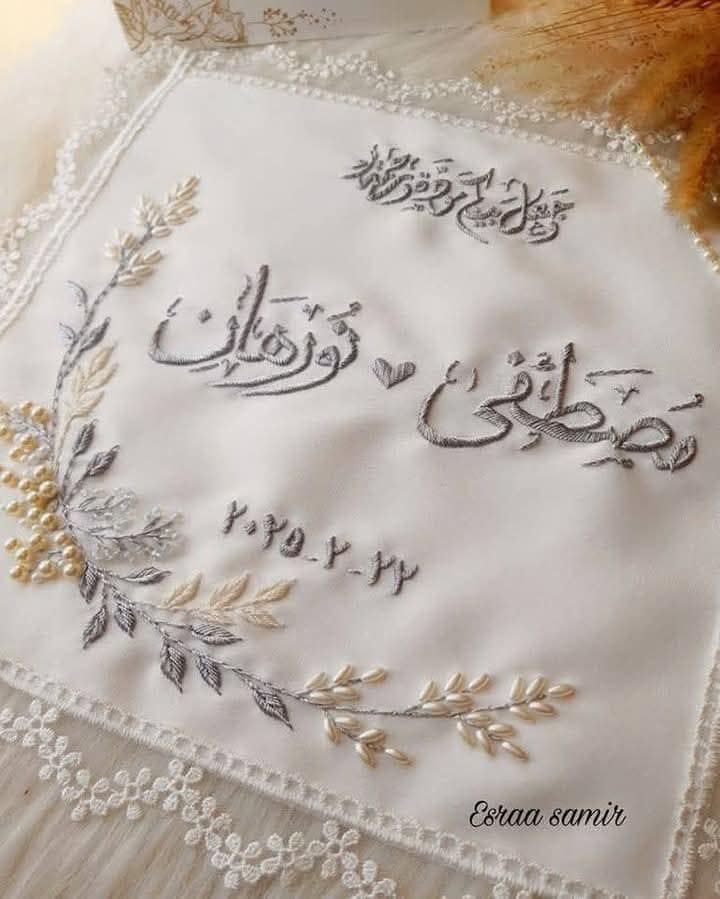 وجعل بينكم مودة ورحمة
مصطفى نورهان
٢٢-٢-٢٠٢٥
Esraa samir